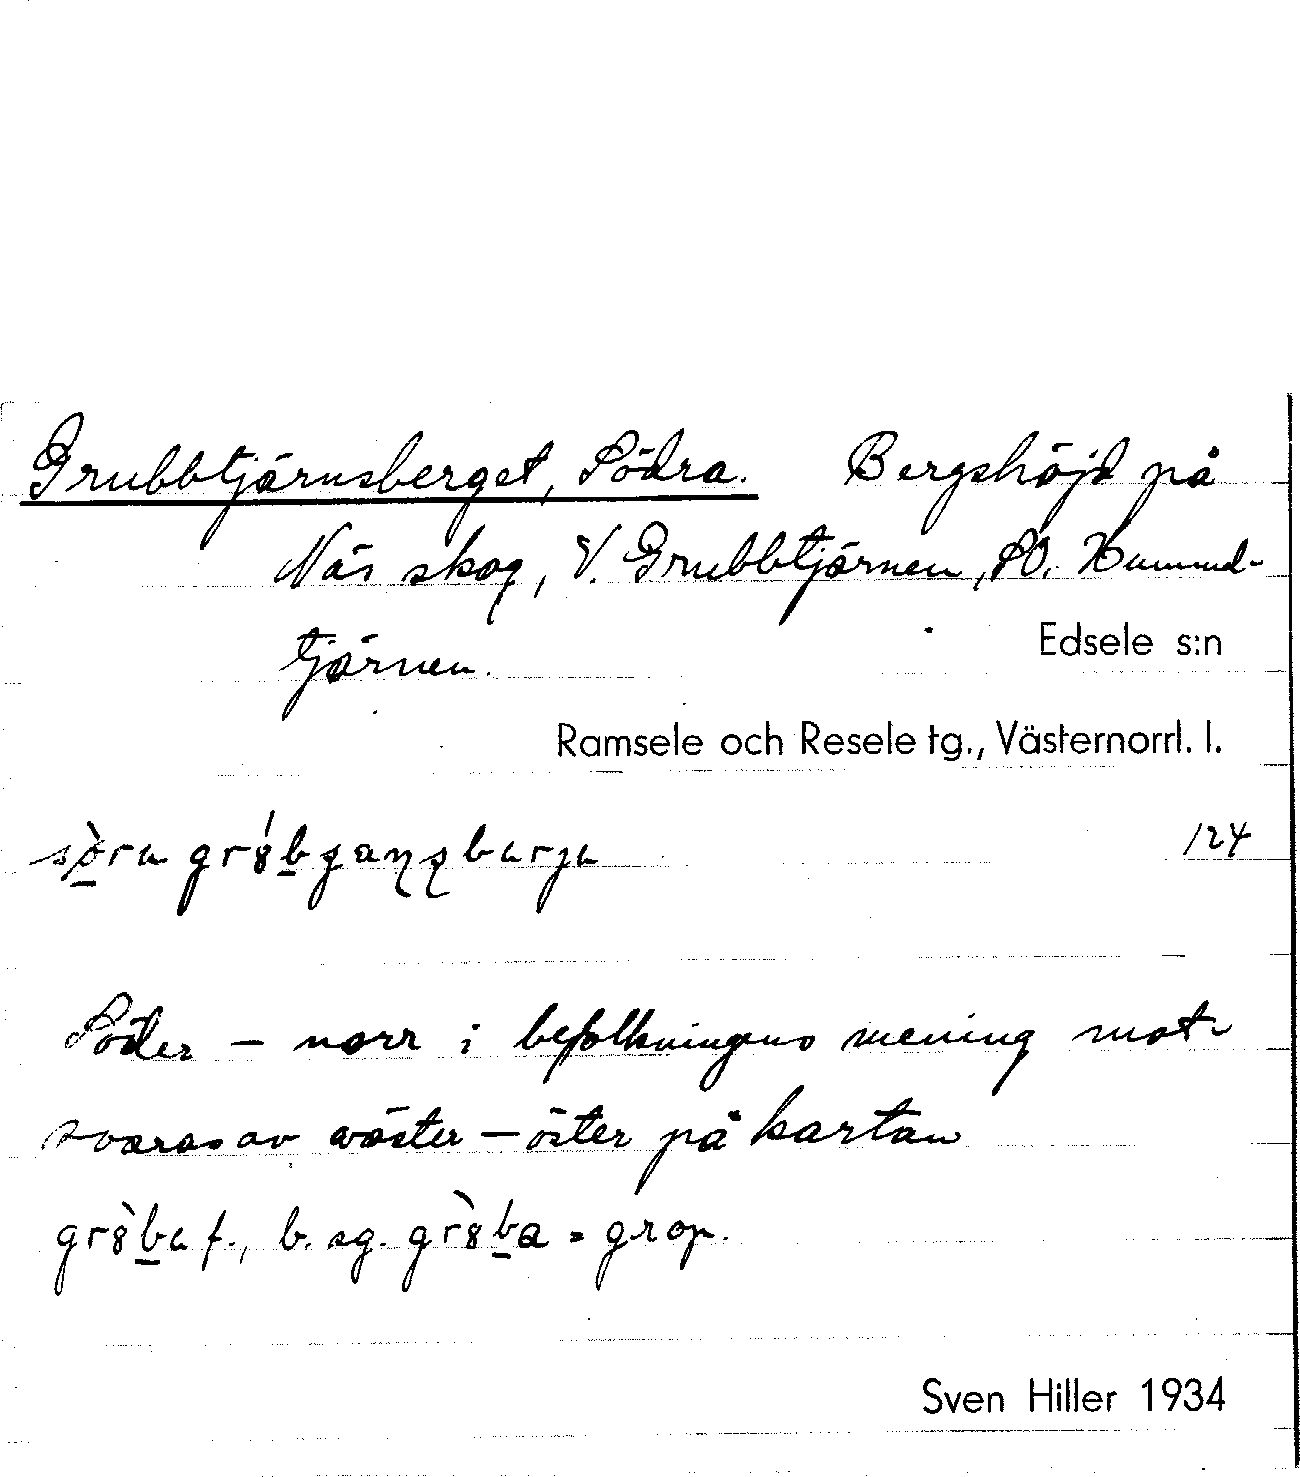 Grubbtjärnsberget, Södra. Bergshöjd på
Näs skog, V. Grubbtjärnen, SO.
tjärnen.
Edsele s:n
Ramsele och Resele tg., Västernorrl. l.
124
Söder – norr i befolkningens mening mot-
svaras av väster – öster på kartan
f., b. sg. = grop.
Sven Hiller 1934